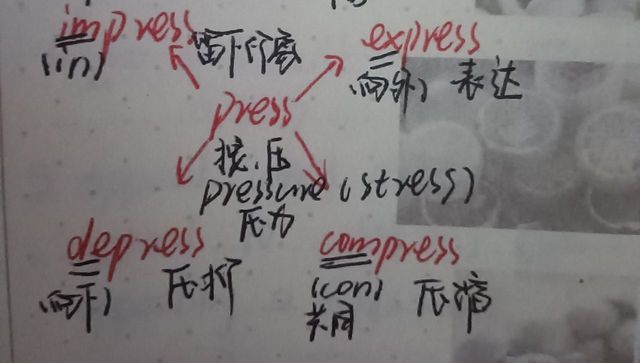 impress 留下印象 express
(in) (向外) 表达
press
按.压
pressure (stress)
压力
depress compress
(向下) 压抑 (con) 压缩
共同